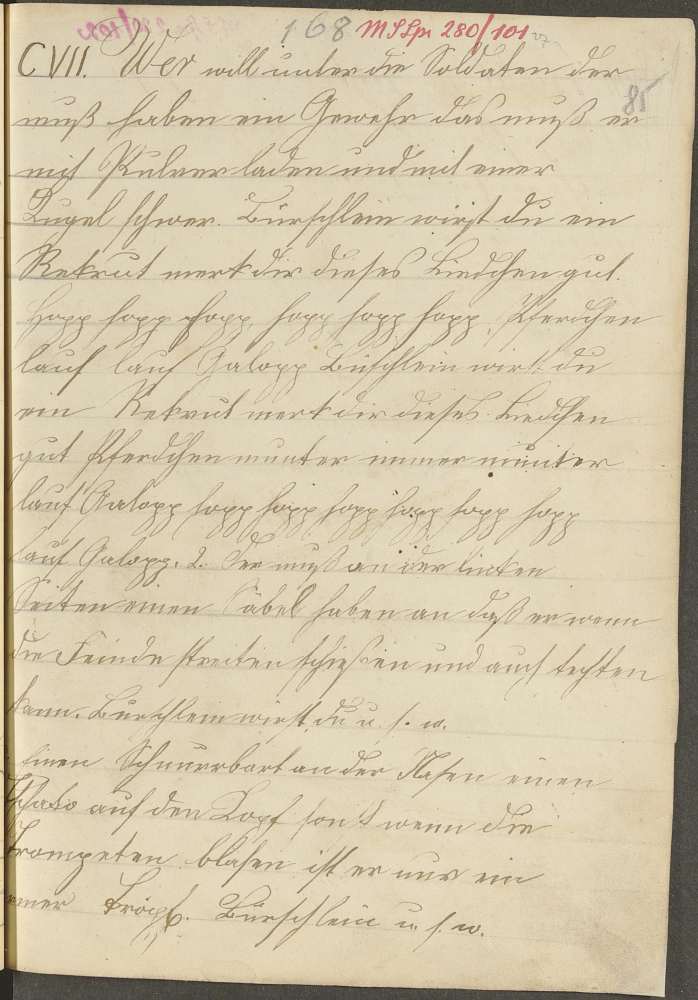 168 MSLpr 280/101
85
CVII. Wer will unter die Soldaten der
muß haben ein Gewehr das muß er
mit Pulver laden und mit einer
Kugel schwer. Bürschlein wirst du ein
Rekrut merk dir dieses Liedchen gut.
Hopp hopp hopp, hopp hopp hopp, Pferdchen
lauf lauf Galopp Büschlein wirst du
ein Rekrut merk dir dieses Liedchen
gut Pferdchen munter immer munter
lauf Galopp hopp hopp hopp hopp hopp hopp
lauf Galopp. 2. Der muß an der linken
Seiten einen Säbel haben an daß er wenn
die Feinde streiten schießen und auch fechten
kann. Bürschlein wirst du u. s. w.
Einen Schnurrbart an der Nasen einen
Tschako auf den Kopf sonst wenn die
Trompeten blasen ist er nur ein
armer Tropf. Bürschlein u. s. w.